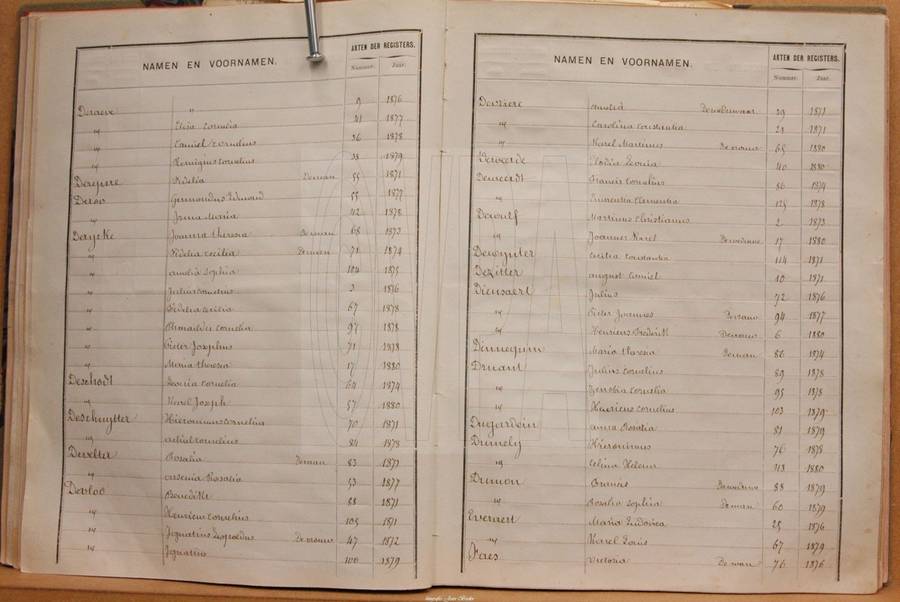 NAMEN EN VOORNAMEN.
AKTEN DER REGISTERS.
Nummer. Jaar.
Deraeve " 9 1876
" Elisa Cornelia 21 1877
" Camiel Cornelius 36 1878
" Remigius Cornelius 38 1879
Derepere Fidelia De man 55 1871
Deroo Germanus Edmond 55 1877
" Irma Maria 42 1878
Derycke Joanna Theresia De man 68 1873
" Fidelia Cecilia De man 71 1874
" Amelia Sophia 104 1875
" Julius Cornelius 3 1876
" Fidelia Cecilia 67 1878
" Cornelia 97 1878
" Pieter Josephus 71 1878
" Maria Theresia 17 1880
Deschodt Leonia Cornelia 64 1874
" Karel Joseph 57 1880
Deschuytter Hieronimus Cornelius 70 1871
" Achiel Cornelius 84 1878
Deselter Rosalia De man 83 1871
" Arsenia Rosalia 53 1877
Desloo Benedikt 88 1871
" Henricus Cornelius 105 1871
" Ignatius Leopoldus De vrouw 47 1872
" Ignatius 100 1879
NAMEN EN VOORNAMEN.
AKTEN DER REGISTERS.
Nummer. Jaar.
Amelia 29 1871
" Carolina Constantia 23 1871
" Karel Martinus De vrouw 65 1880
Deweerde Elodia Leonia 40 1880
Deweerdt Francis Cornelius 56 1874
" Emerentia Clementia 125 1878
Dewulf Martinus Christianus 2 1873
" Joannes Karel De weduwe 17 1880
Dewynter Cecilia Constantia 114 1871
Dezitter August Camiel 10 1871
Diensaert Julius 72 1876
" Pieter Joannes De vrouw 94 1877
" Henricus Frederik De vrouw 6 1880
Dinnequin Maria Theresia De man 86 1874
Druant Julius Cornelius 89 1878
" Zenobia Cornelia 95 1878
" Henricus Cornelius 103 1879
Dugardein Anna Rosalia 81 1879
Dumely Hieronimus 76 1878
" Celina Helena 113 1880
Dumon Francis De weduwe 88 1879
" Rosalia Sophia De man 60 1879
Everaert Maria Ludovica 25 1876
" Karel Louis 67 1879
Faes Victoria De man 76 1876